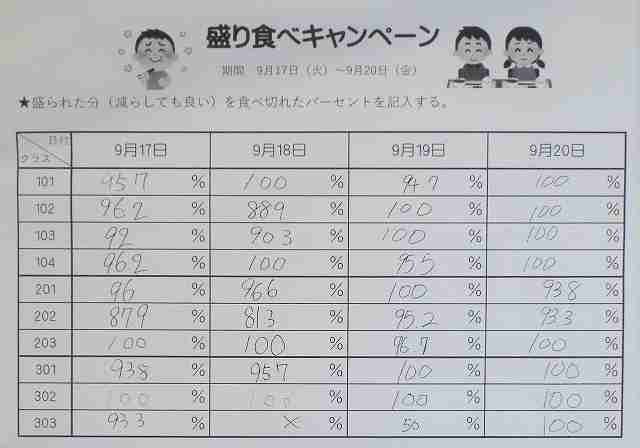 盛り食べキャンペーン
期間 9月17日（火）～9月20日（金）
★盛られた分（減らしても良い）を食べ切れたパーセントを記入する。
日付 クラス 9月17日 9月18日 9月19日 9月20日
101 95.7 % 100 % 94.7 % 100 %
102 96.2 % 88.9 % 100 % 100 %
103 92 % 90.3 % 100 % 100 %
104 96.2 % 100 % 95.5 % 100 %
201 96 % 96.6 % 100 % 93.8 %
202 87.9 % 81.3 % 95.2 % 93.3 %
203 100 % 100 % 96.7 % 100 %
301 93.8 % 95.7 % 100 % 100 %
302 100 % 100 % 100 % 100 %
303 93.3 % × % 50 % 100 %